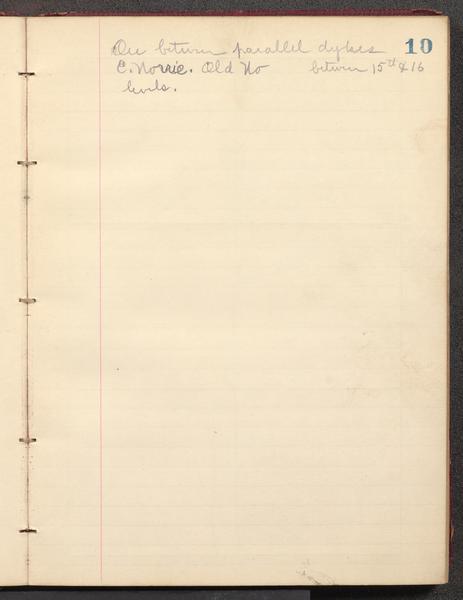 Ore between parallel dykes 19
C. Norrie. Old No between 15th & 16
levels.